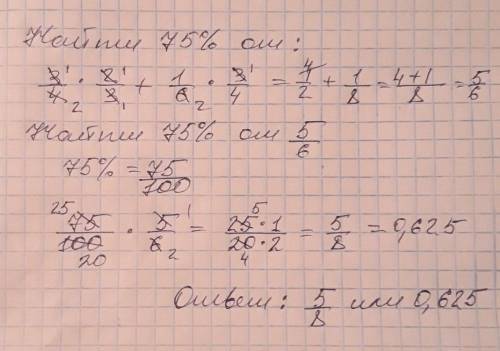 Найти 75% от:
3/4 · 2/3 + 1/6 · 3/4 = 1/2 + 1/8 = 4+1/8 = 5/6
Найти 75% от 5/6
75% = 75/100
75/100 · 5/6 = 25·1/20·2 = 5/8 = 0,625
Ответ: 5/8 или 0,625